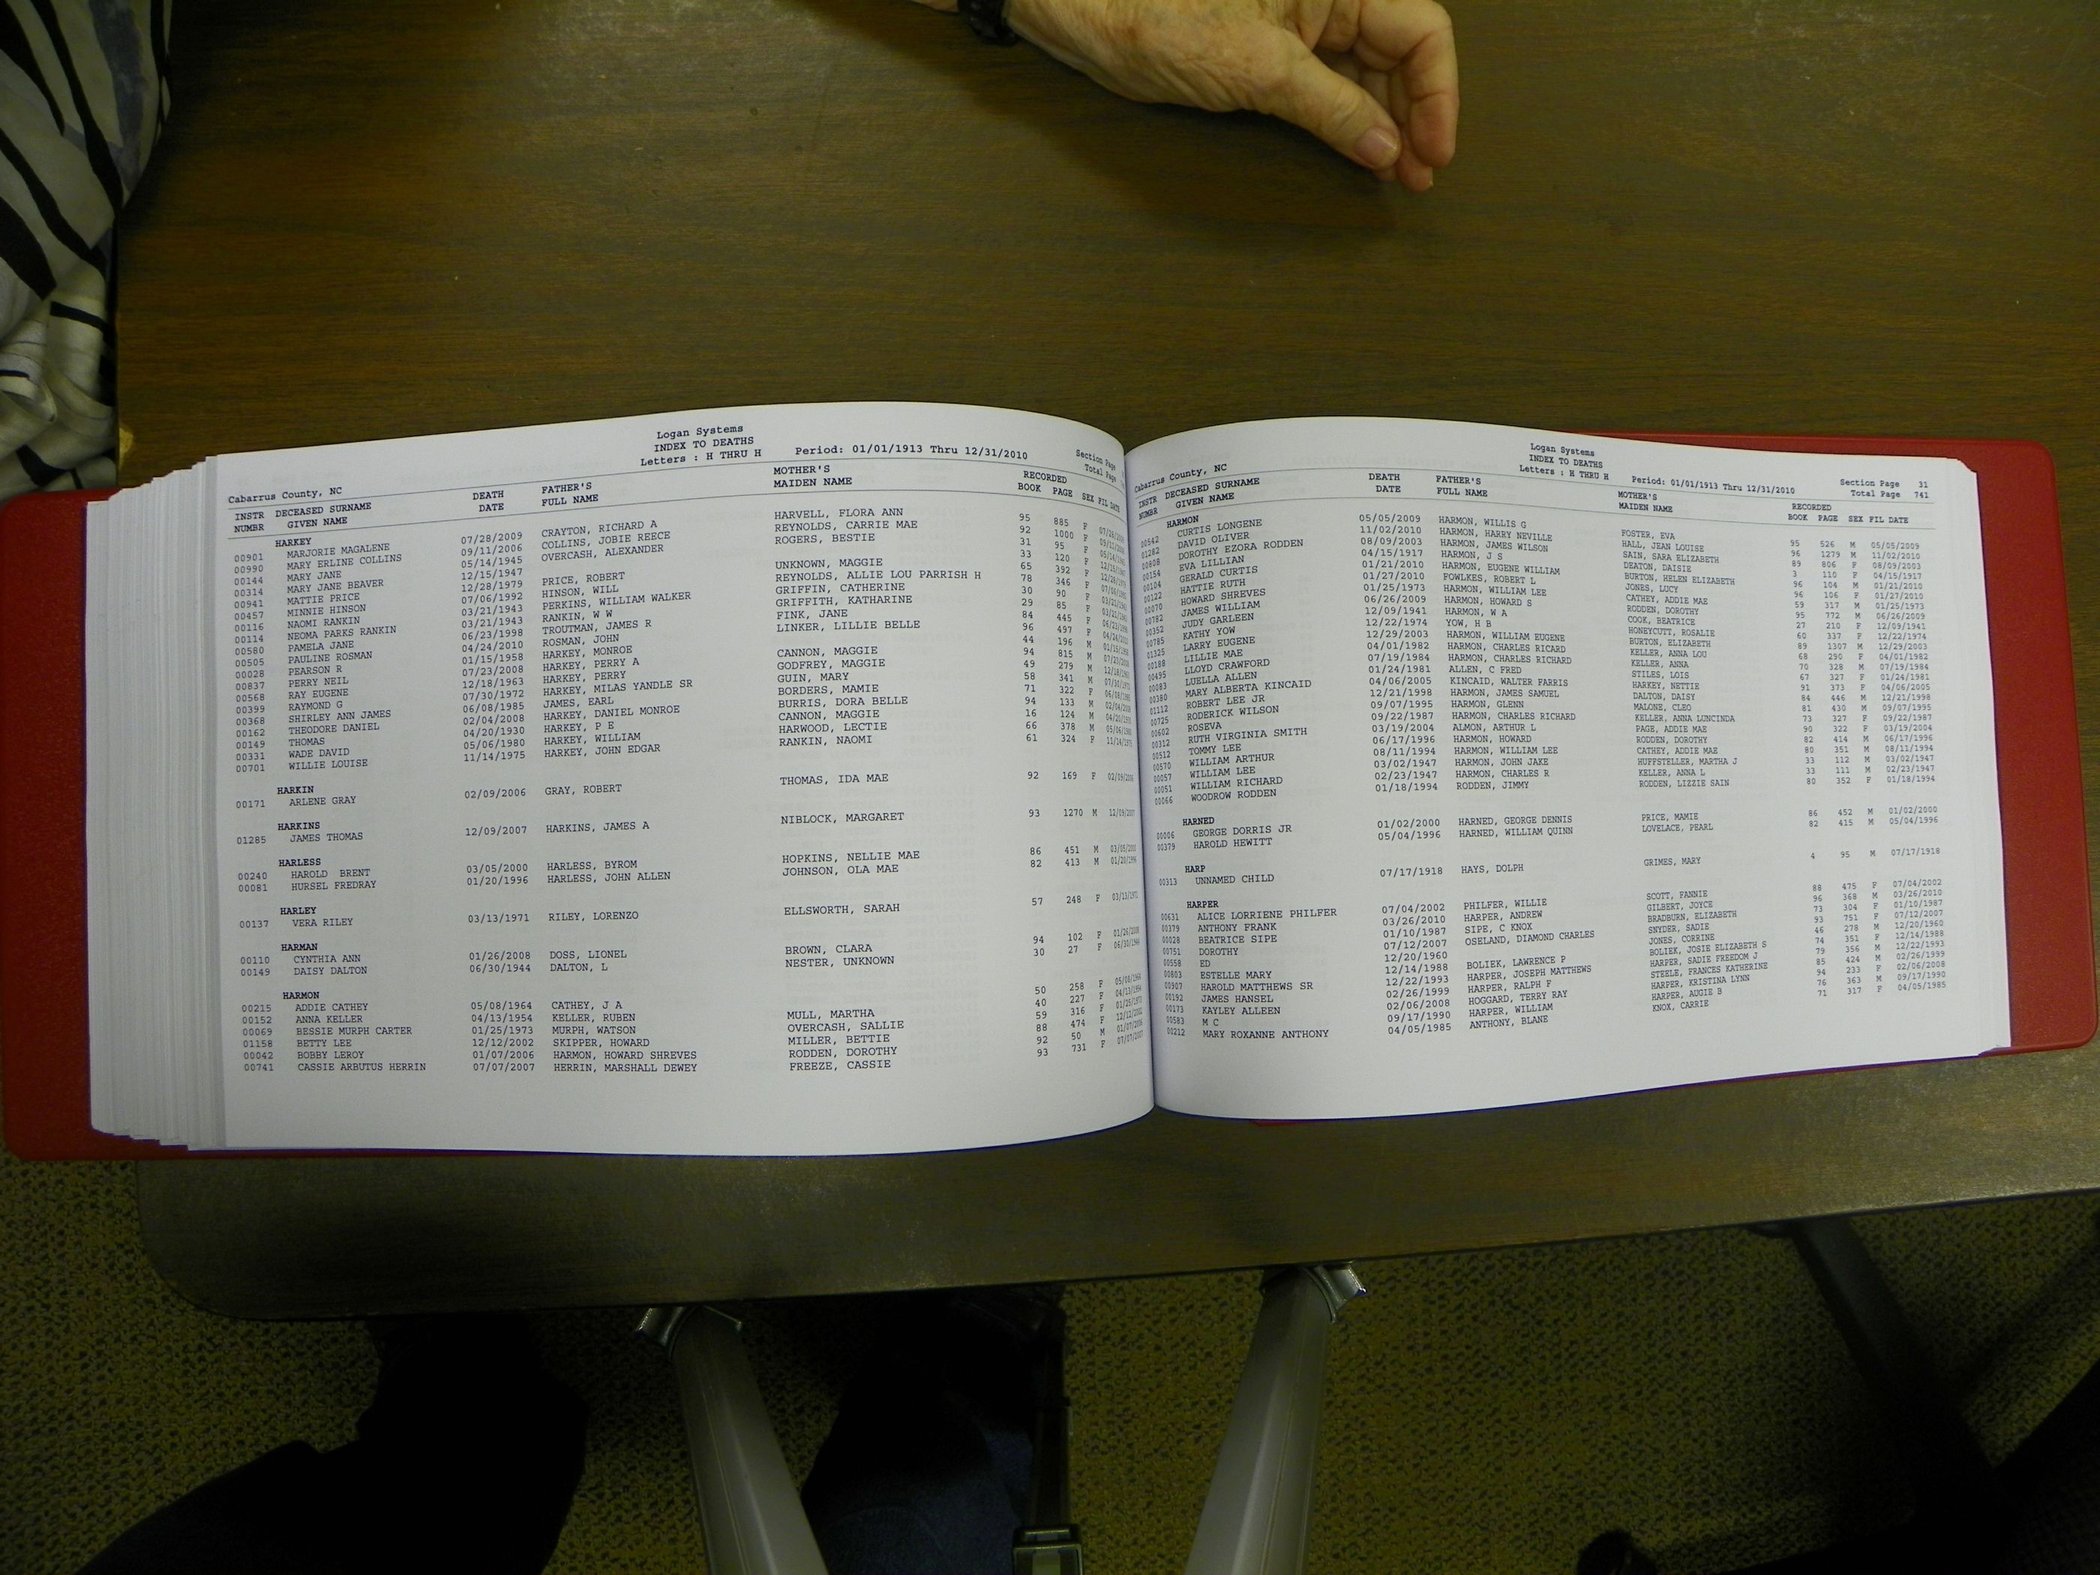 Logan Systems
INDEX TO DEATHS
Cabarrus County, NC Letters : H THRU H Period: 01/01/1913 Thru 12/31/2010 Section Page
Total Page
INSTR DECEASED SURNAME DEATH FATHER'S MOTHER'S RECORDED
NUMBR GIVEN NAME DATE FULL NAME MAIDEN NAME BOOK PAGE SEX FIL DATE
HARKEY
00901 MARJORIE MAGALENE 07/28/2009 CRAYTON, RICHARD A HARVELL, FLORA ANN 95 885 F
00990 MARY ERLINE COLLINS 09/11/2006 COLLINS, JOBIE REECE REYNOLDS, CARRIE MAE 92 1000 F
00144 MARY JANE 05/14/1945 OVERCASH, ALEXANDER ROGERS, BESTIE 31 95 F
00314 MARY JANE BEAVER 12/15/1947 33 120 F
00941 MATTIE PRICE 12/28/1979 PRICE, ROBERT UNKNOWN, MAGGIE 65 392 F
00457 MINNIE HINSON 07/06/1992 HINSON, WILL REYNOLDS, ALLIE LOU PARRISH H 78 346 F
00116 NAOMI RANKIN 03/21/1943 PERKINS, WILLIAM WALKER GRIFFIN, CATHERINE 30 90 F
00114 NEOMA PARKS RANKIN 03/21/1943 RANKIN, W W GRIFFITH, KATHARINE 29 85 F
00580 PAMELA JANE 06/23/1998 TROUTMAN, JAMES R FINK, JANE 84 445 F
00505 PAULINE ROSMAN 04/24/2010 ROSMAN, JOHN LINKER, LILLIE BELLE 96 497 F
00028 PEARSON R 01/15/1958 HARKEY, MONROE 44 196 M
00837 PERRY NEIL 07/23/2008 HARKEY, PERRY A CANNON, MAGGIE 94 815 M
00568 RAY EUGENE 12/18/1963 HARKEY, PERRY GODFREY, MAGGIE 49 279 M
00399 RAYMOND G 07/30/1972 HARKEY, MILAS YANDLE SR GUIN, MARY 58 341 M
00368 SHIRLEY ANN JAMES 06/08/1985 JAMES, EARL BORDERS, MAMIE 71 322 F
00162 THEODORE DANIEL 02/04/2008 HARKEY, DANIEL MONROE BURRIS, DORA BELLE 94 133 M
00149 THOMAS 04/20/1930 HARKEY, P E CANNON, MAGGIE 16 124 M
00331 WADE DAVID 05/06/1980 HARKEY, WILLIAM HARWOOD, LECTIE 66 378 M
00701 WILLIE LOUISE 11/14/1975 HARKEY, JOHN EDGAR RANKIN, NAOMI 61 324 F
HARKIN
00171 ARLENE GRAY 02/09/2006 GRAY, ROBERT THOMAS, IDA MAE 92 169 F 02/09/2006
HARKINS
01285 JAMES THOMAS 12/09/2007 HARKINS, JAMES A NIBLOCK, MARGARET 93 1270 M 12/09/2007
HARLESS
00240 HAROLD BRENT 03/05/2000 HARLESS, BYROM HOPKINS, NELLIE MAE 86 451 M 03/05/2000
00081 HURSEL FREDRAY 01/20/1996 HARLESS, JOHN ALLEN JOHNSON, OLA MAE 82 413 M 01/20/1996
HARLEY
00137 VERA RILEY 03/13/1971 RILEY, LORENZO ELLSWORTH, SARAH 57 248 F 03/13/1971
HARMAN
00110 CYNTHIA ANN 01/26/2008 DOSS, LIONEL BROWN, CLARA 94 102 F 01/26/2008
00149 DAISY DALTON 06/30/1944 DALTON, L NESTER, UNKNOWN 30 27 F 06/30/1944
HARMON
00215 ADDIE CATHEY 05/08/1964 CATHEY, J A 50 258 F 05/08/1964
00152 ANNA KELLER 04/13/1954 KELLER, RUBEN MULL, MARTHA 40 227 F 04/13/1954
00069 BESSIE MURPH CARTER 01/25/1973 MURPH, WATSON OVERCASH, SALLIE 59 316 F 01/25/1973
01158 BETTY LEE 12/12/2002 SKIPPER, HOWARD MILLER, BETTIE 88 474 F 12/12/2002
00042 BOBBY LEROY 01/07/2006 HARMON, HOWARD SHREVES RODDEN, DOROTHY 92 50 M 01/07/2006
00741 CASSIE ARBUTUS HERRIN 07/07/2007 HERRIN, MARSHALL DEWEY FREEZE, CASSIE 93 731 F 07/07/2007
Logan Systems
INDEX TO DEATHS
Cabarrus County, NC Letters : H THRU H Period: 01/01/1913 Thru 12/31/2010 Section Page 31
Total Page 741
INSTR DECEASED SURNAME DEATH FATHER'S MOTHER'S RECORDED
NUMBR GIVEN NAME DATE FULL NAME MAIDEN NAME BOOK PAGE SEX FIL DATE
HARMON
00542 CURTIS LONGENE 05/05/2009 HARMON, WILLIS G FOSTER, EVA 95 526 M 05/05/2009
01282 DAVID OLIVER 11/02/2010 HARMON, HARRY NEVILLE HALL, JEAN LOUISE 96 1279 M 11/02/2010
00808 DOROTHY EZORA RODDEN 08/09/2003 HARMON, JAMES WILSON SAIN, SARA ELIZABETH 89 806 F 08/09/2003
00154 EVA LILLIAN 04/15/1917 HARMON, J S DEATON, DAISIE 3 110 F 04/15/1917
00104 GERALD CURTIS 01/21/2010 HARMON, EUGENE WILLIAM BURTON, HELEN ELIZABETH 96 104 M 01/21/2010
00122 HATTIE RUTH 01/27/2010 FOWLKES, ROBERT L JONES, LUCY 96 106 F 01/27/2010
00070 HOWARD SHREVES 01/25/1973 HARMON, WILLIAM LEE CATHEY, ADDIE MAE 59 317 M 01/25/1973
00782 JAMES WILLIAM 06/26/2009 HARMON, HOWARD S RODDEN, DOROTHY 95 772 M 06/26/2009
00352 JUDY GARLEEN 12/09/1941 HARMON, W A COOK, BEATRICE 27 210 F 12/09/1941
00785 KATHY YOW 12/22/1974 YOW, H B HONEYCUTT, ROSALIE 60 337 F 12/22/1974
01325 LARRY EUGENE 12/29/2003 HARMON, WILLIAM EUGENE BURTON, ELIZABETH 89 1307 M 12/29/2003
00188 LILLIE MAE 04/01/1982 HARMON, CHARLES RICARD KELLER, ANNA LOU 68 290 F 04/01/1982
00495 LLOYD CRAWFORD 07/19/1984 HARMON, CHARLES RICHARD KELLER, ANNA 70 328 M 07/19/1984
00083 LUELLA ALLEN 01/24/1981 ALLEN, C FRED STILES, LOIS 67 327 F 01/24/1981
00380 MARY ALBERTA KINCAID 04/06/2005 KINCAID, WALTER FARRIS HARKEY, NETTIE 91 373 F 04/06/2005
01112 ROBERT LEE JR 12/21/1998 HARMON, JAMES SAMUEL DALTON, DAISY 84 446 M 12/21/1998
00725 RODERICK WILSON 09/07/1995 HARMON, GLENN MALONE, CLEO 81 430 M 09/07/1995
00602 ROSEVA 09/22/1987 HARMON, CHARLES RICHARD KELLER, ANNA LUNCINDA 73 327 F 09/22/1987
00312 RUTH VIRGINIA SMITH 03/19/2004 ALMON, ARTHUR L PAGE, ADDIE MAE 90 322 F 03/19/2004
00512 TOMMY LEE 06/17/1996 HARMON, HOWARD RODDEN, DOROTHY 82 414 M 06/17/1996
00570 WILLIAM ARTHUR 08/11/1994 HARMON, WILLIAM LEE CATHEY, ADDIE MAE 80 351 M 08/11/1994
00057 WILLIAM LEE 03/02/1947 HARMON, JOHN JAKE HUFFSTELLER, MARTHA J 33 112 M 03/02/1947
00051 WILLIAM RICHARD 02/23/1947 HARMON, CHARLES R KELLER, ANNA L 33 111 M 02/23/1947
00066 WOODROW RODDEN 01/18/1994 RODDEN, JIMMY RODDEN, LIZZIE SAIN 80 352 F 01/18/1994
HARNED
00006 GEORGE DORRIS JR 01/02/2000 HARNED, GEORGE DENNIS PRICE, MAMIE 86 452 M 01/02/2000
00379 HAROLD HEWITT 05/04/1996 HARNED, WILLIAM QUINN LOVELACE, PEARL 82 415 M 05/04/1996
HARP
00313 UNNAMED CHILD 07/17/1918 HAYS, DOLPH GRIMES, MARY 4 95 M 07/17/1918
HARPER
00631 ALICE LORRIENE PHILFER 07/04/2002 PHILFER, WILLIE SCOTT, FANNIE 88 475 F 07/04/2002
00379 ANTHONY FRANK 03/26/2010 HARPER, ANDREW GILBERT, JOYCE 96 368 M 03/26/2010
00028 BEATRICE SIPE 01/10/1987 SIPE, C KNOX BRADBURN, ELIZABETH 73 304 F 01/10/1987
00751 DOROTHY 07/12/2007 OSELAND, DIAMOND CHARLES SNYDER, SADIE 93 751 F 07/12/2007
00558 ED 12/20/1960 JONES, CORRINE 46 278 M 12/20/1960
00803 ESTELLE MARY 12/14/1988 BOLIEK, LAWRENCE P BOLIEK, JOSIE ELIZABETH S 74 351 F 12/14/1988
00907 HAROLD MATTHEWS SR 12/22/1993 HARPER, JOSEPH MATTHEWS HARPER, SADIE FREEDOM J 79 356 M 12/22/1993
00192 JAMES HANSEL 02/26/1999 HARPER, RALPH F STEELE, FRANCES KATHERINE 85 424 M 02/26/1999
00173 KAYLEY ALLEEN 02/06/2008 HOGGARD, TERRY RAY HARPER, KRISTINA LYNN 94 233 F 02/06/2008
00583 M C 09/17/1990 HARPER, WILLIAM HARPER, AUGIE B 76 363 M 09/17/1990
00212 MARY ROXANNE ANTHONY 04/05/1985 ANTHONY, BLANE KNOX, CARRIE 71 317 F 04/05/1985